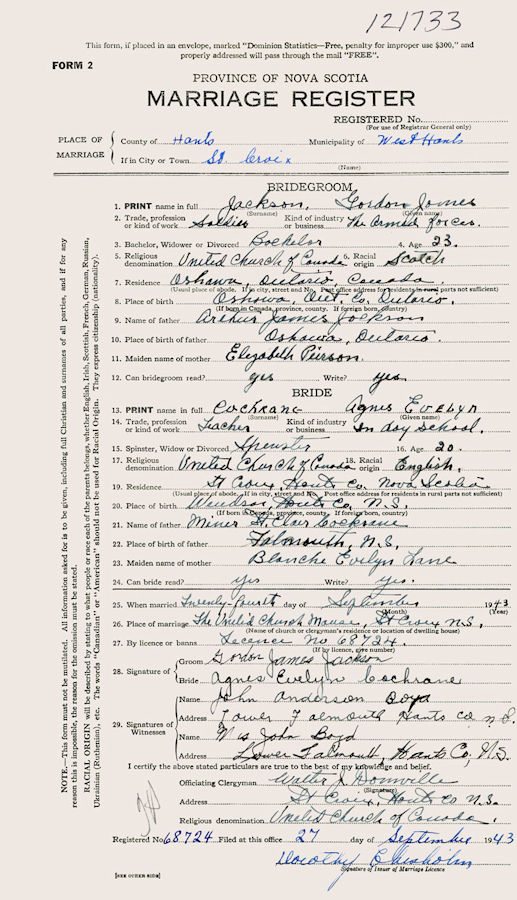 121733
This form, if placed in an envelope, marked "Dominion Statistics—Free, penalty for improper use $300," and
properly addressed will pass through the mail "FREE".
FORM 2
PROVINCE OF NOVA SCOTIA
MARRIAGE REGISTER
REGISTERED No.
(For use of Registrar General only)
PLACE OF MARRIAGE
County of Hants Municipality of West Hants
If in City or Town St. Croix
(Name)
BRIDEGROOM
1. PRINT name in full Jackson, Gordon James
(Surname) (Given name)
2. Trade, profession or kind of work Soldier Kind of industry or business The Armed Forces.
3. Bachelor, Widower or Divorced Bachelor 4. Age 23.
5. Religious denomination United Church of Canada 6. Racial origin Scotch
7. Residence Oshawa Ontario Canada.
(Usual place of abode. If in city, street and No. Post office address for residents in rural parts not sufficient)
8. Place of birth Oshawa, Ont. Co. Ontario.
(If born in Canada, province, county. If foreign born, country)
9. Name of father Arthur James Jackson
10. Place of birth of father Oshawa, Ontario.
11. Maiden name of mother Elizabeth Peirson.
12. Can bridegroom read? yes Write? yes
BRIDE
13. PRINT name in full Cochrane Agnes Evelyn
(Surname) (Given name)
14. Trade, profession or kind of work Teacher Kind of industry or business In day school.
15. Spinster, Widow or Divorced Spinster 16. Age 20.
17. Religious denomination United Church of Canada 18. Racial origin English.
19. Residence St Croix, Hants Co. Nova Scotia
(Usual place of abode. If in city, street and No. Post office address for residents in rural parts not sufficient)
20. Place of birth Windsor, Hants Co. N.S.
(If born in Canada, province, county. If foreign born, country)
21. Name of father Miner St. Clair Cochrane
22. Place of birth of father Falmouth, N.S.
23. Maiden name of mother Blanche Evelyn Lane
24. Can bride read? yes Write? yes.
25. When married Twenty-fourth day of September 1943
(Month) (Year)
26. Place of marriage The United Church Manse, St Croix N.S.
(Name of church or clergyman's residence or location of dwelling house)
27. By licence or banns Licence No 68724.
(If by licence, give number)
28. Signature of
Groom Gordon James Jackson
Bride Agnes Evelyn Cochrane
29. Signatures of Witnesses
Name John Anderson Boyd
Address Lower Falmouth Hants Co N.S.
Name Mrs John Boyd
Address Lower Falmouth, Hants Co, N.S.
I certify the above stated particulars are true to the best of my knowledge and belief.
Officiating Clergyman Walter J. Domville
(Signature)
Address St Croix, Hants Co N.S.
Religious denomination United Church of Canada.
Registered No. 68724 Filed at this office 27 day of September 1943
Dorothy Chisholm
Signature of Issuer of Marriage Licence
[SEE OTHER SIDE]
NOTE.—This form must not be mutilated. All information asked for is to be given, including full Christian and surnames of all parties, and if for any
reason this is impossible, the reason for the omission must be stated.
RACIAL ORIGIN will be described by stating to what people or race each of the parents belongs, whether English, Irish, Scottish, French, German, Russian,
Ukrainian (Ruthenian), etc. The words "Canadian" or "American" should not be used for Racial Origin. They express citizenship (nationality).